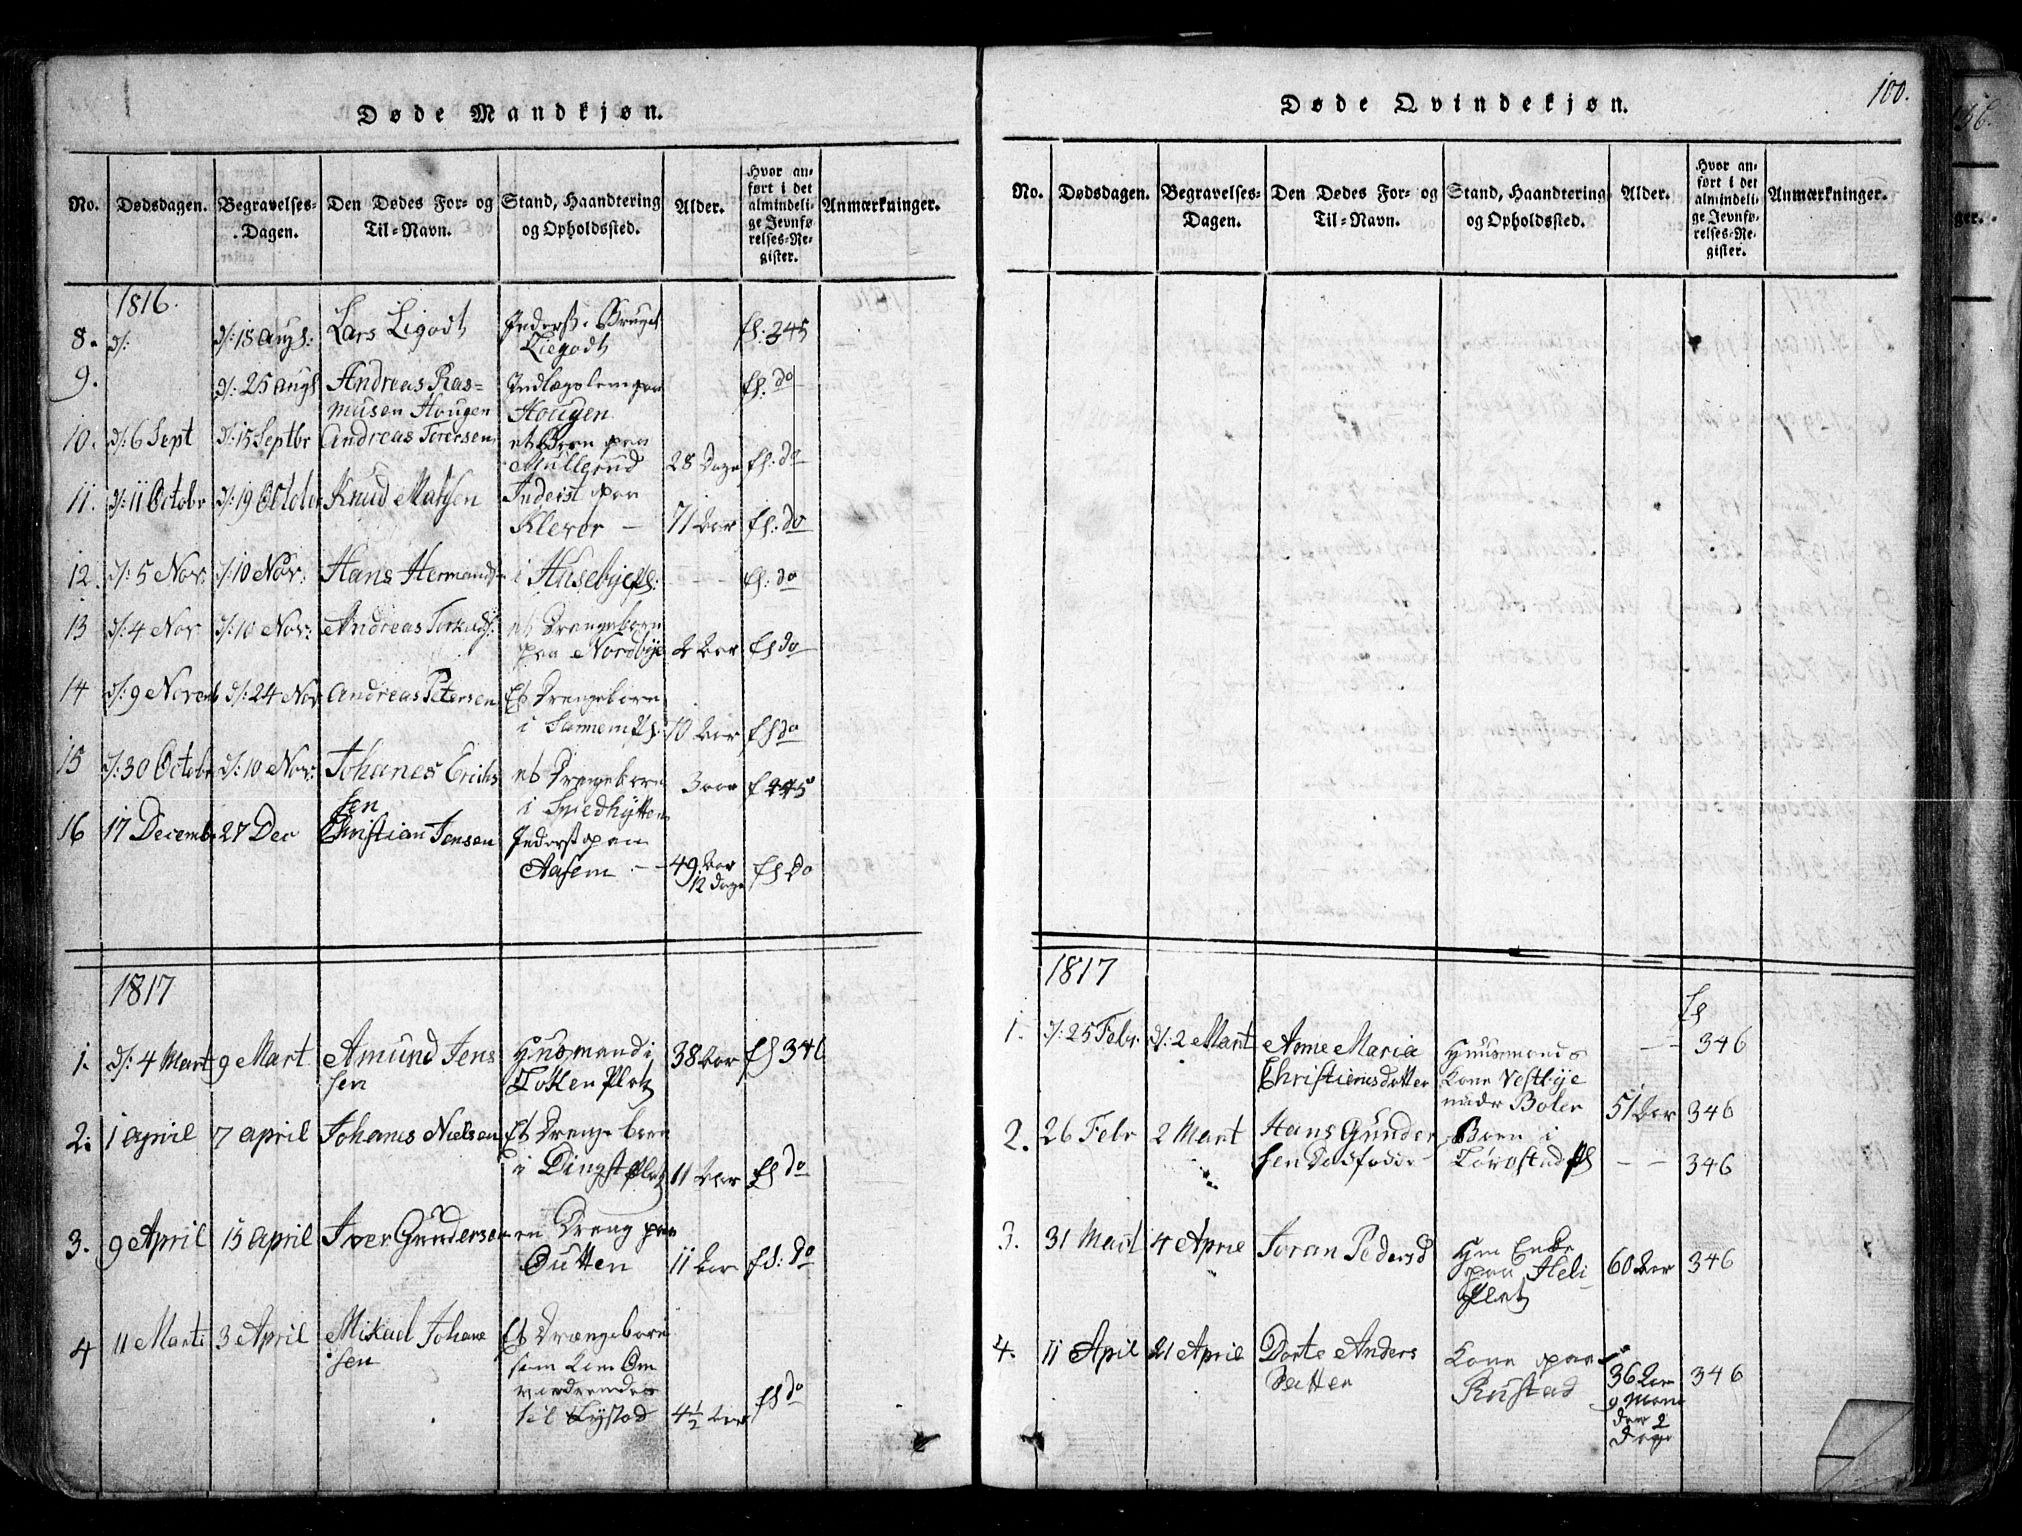 Døde Mandkjøn.
No. Dødsdagen. Begravelses-Dagen. Den Dødes For- og Til-Navn. Stand, Haandtering og Opholdssted. Alder. Hvor anført i det almindelige Jevnførelses-Register. Anmærkninger.
1816.
8. d: d: 18 Augs: Lars Ligodt
Liegodt fl. 245
9. d: 25 augs Andreas Ras=
musen Hougen Hougen fl: do
10. d: 6 Sept d: 15 Septbr Andreas Torersen et Barn paa
Müllerud 28 Dage fl: do
11. d: 11 Octobr d: 19 October Knud Matsen Inderst paa
Klever – 71 Aar fl: do
12. d: 5 Nov. d: 10 Nov: Hans Hermands i Husebyepl: fl: do
13 d: 4 Nov d: 10 Nov: Andreas et Drengebarn
paa Nordbye 2 Aar fl do
14 d: 9 Novemb d: 24 Nov Andreas Petersen Et Drengebarn
i 10 Aar fl do
15 d: 30 Octobr d: 10 Nov: Johanes Ericks
sen et Drengebarn
i Smedhytten 3 aar f 245
16 17 Decembr 27 Dec Christian Jensen Inderst paa
Aasem - - 49 Aar
12 Dage fl do
1817
1. d: 4 Mart 9 Mart Amund Jens
sen Huusmand i
Totten Platz 38 Aar fl 346
2. 1 april 7 april Johanes Nielsen Et Drengebarn
i Dingst Platz 11 Aar fl do
3. 9 April 15 april Iver Gundersen en Dreng paa
Outten 11 Aar fl: do
4 11 Marti 3 April Mikael Johane
sen Et Drængebarn
som kom Om
vandrendes
til Lystad 4½ Aar fl do
100.
Døde Qvindekjøn.
No. Dødsdagen. Begravelses-Dagen. Den Dødes For- og Til-Navn. Stand, Haandtering og Opholdssted. Alder. Hvor anført i det almindelige Jevnførelses-Register. Anmærkninger.
1817
fl
1. d: 25 Febr d: 2 Mart Anne Maria
Christiensdatter Huusmands
Kone Vestbye
undr Boler 51 Aar 346
346
2. 26 Febr 2 Mart Hans Gunder
sen Dødfødde Barn i
Torostad Pl – – 346
3. 31 Mart 4 April Joran Pedersd En Enke
paa Heli
Platz 60 Aar 346
4. 11 April 21 April Dorte Anders
Datter Kone paa
Rustad 36 Aar
9 Mane
der 2
Dage 346